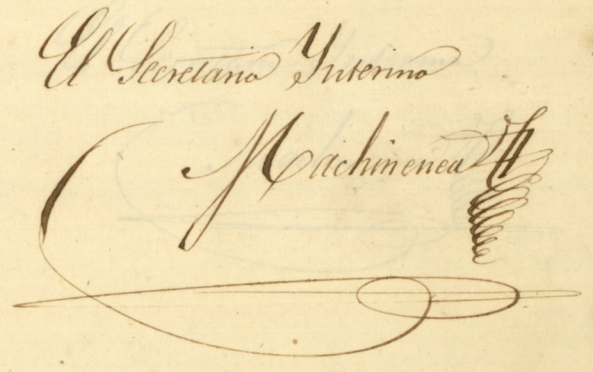 El Secretario Interino
Machinenea